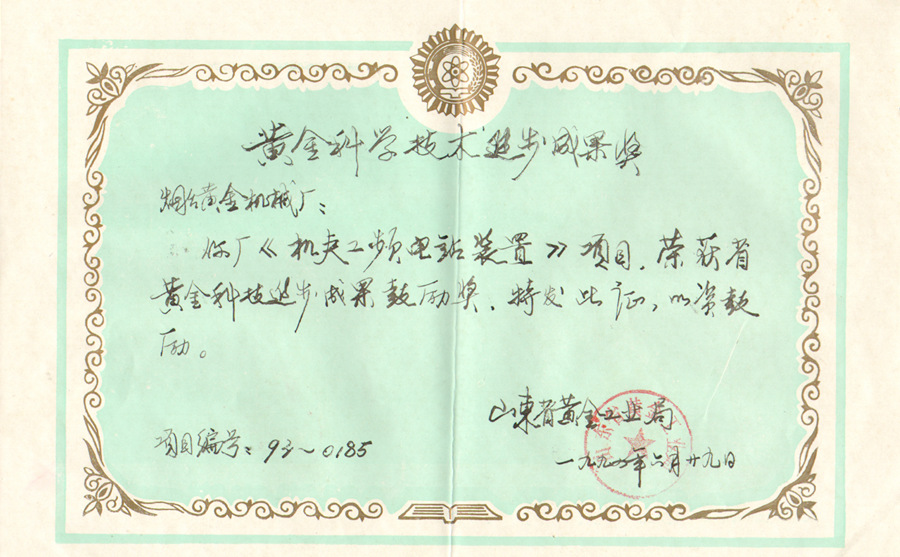 黄金科学技术进步成果奖
烟台黄金机械厂：
你厂《机夹工频电站装置》项目，荣获省
黄金科技进步成果鼓励奖，特发此证，以资鼓
励。
山东省黄金工业局
项目编号：93～0185
年六月廿九日